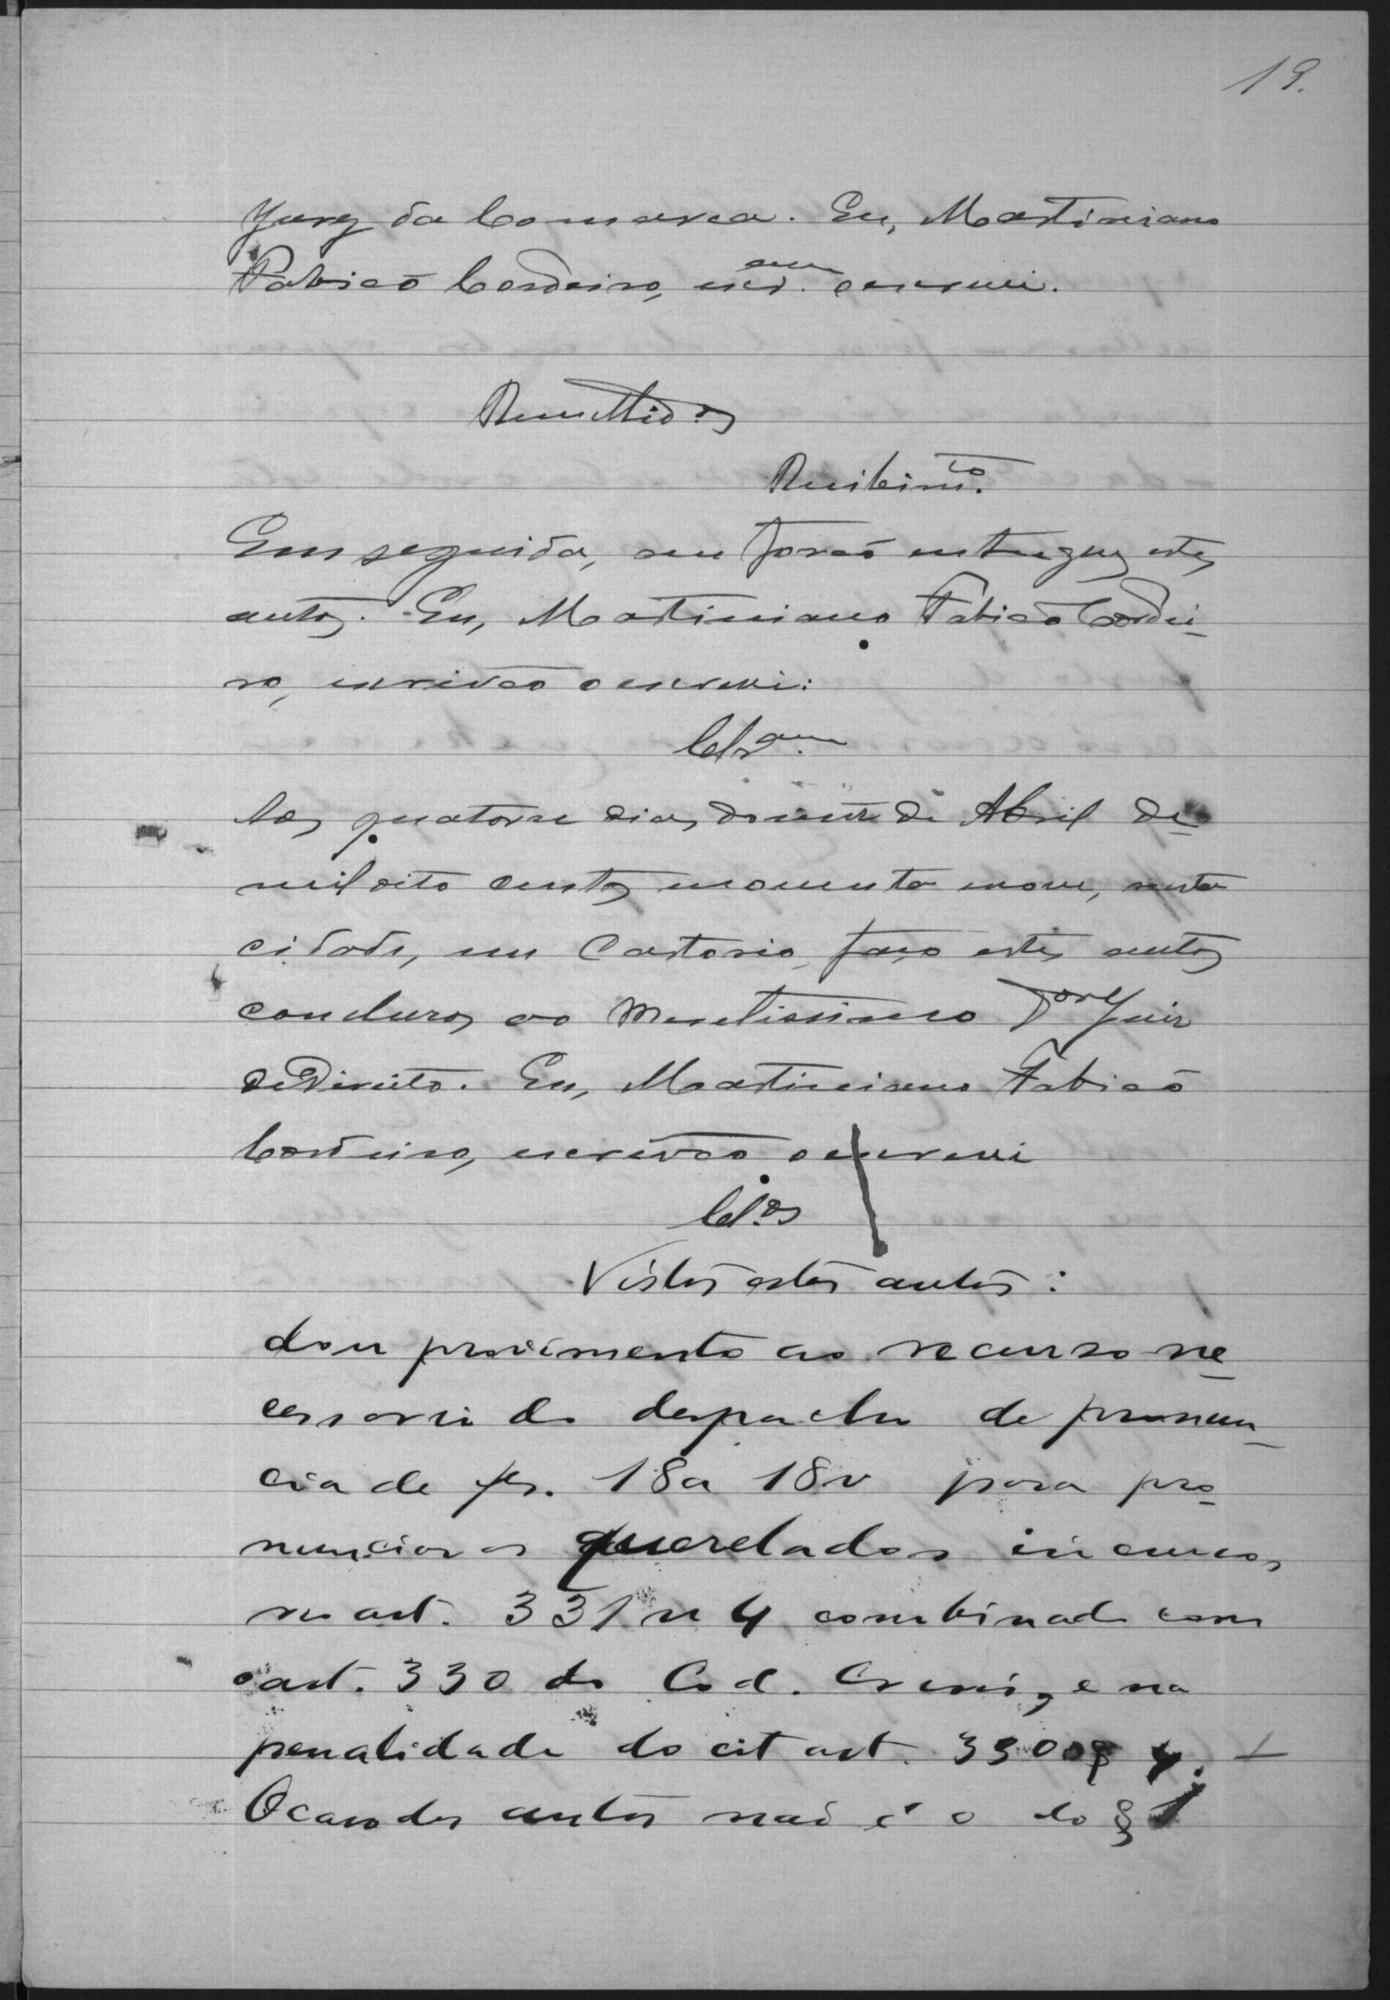 19.
Jury da Comarca. Eu, Martiniano
Fabião Cordeiro, escr.am o escrevi.
Remettidos
Recebim.to
Em seguida, me forão entregues estes
autos. Eu, Martiniano Fabião Cordei-
ro, escrivão o escrevi:
Cls.am
Aos quatorse dias do mez de Abril de
mil oito centos noventa nove, nesta
cidade, em Cartorio, faço estes autos
concluzos ao Meretissimo Dor Juiz
de Direito. Eu, Martiniano Fabião
Cordeiro, escrivão o escrevi
Cl.os
Vistos estes autos:
dou provimento ao recurso ne-
cessario do despacho de pronun-
cia de fs. 18 a 18v para pro-
nunciar os querelados incursos
no art. 331 n 4 combinado com
o art. 330 do Cod. Crim., e na
penalidade do cit art. 330 § 4.
O caso dos autos não é o do § 1